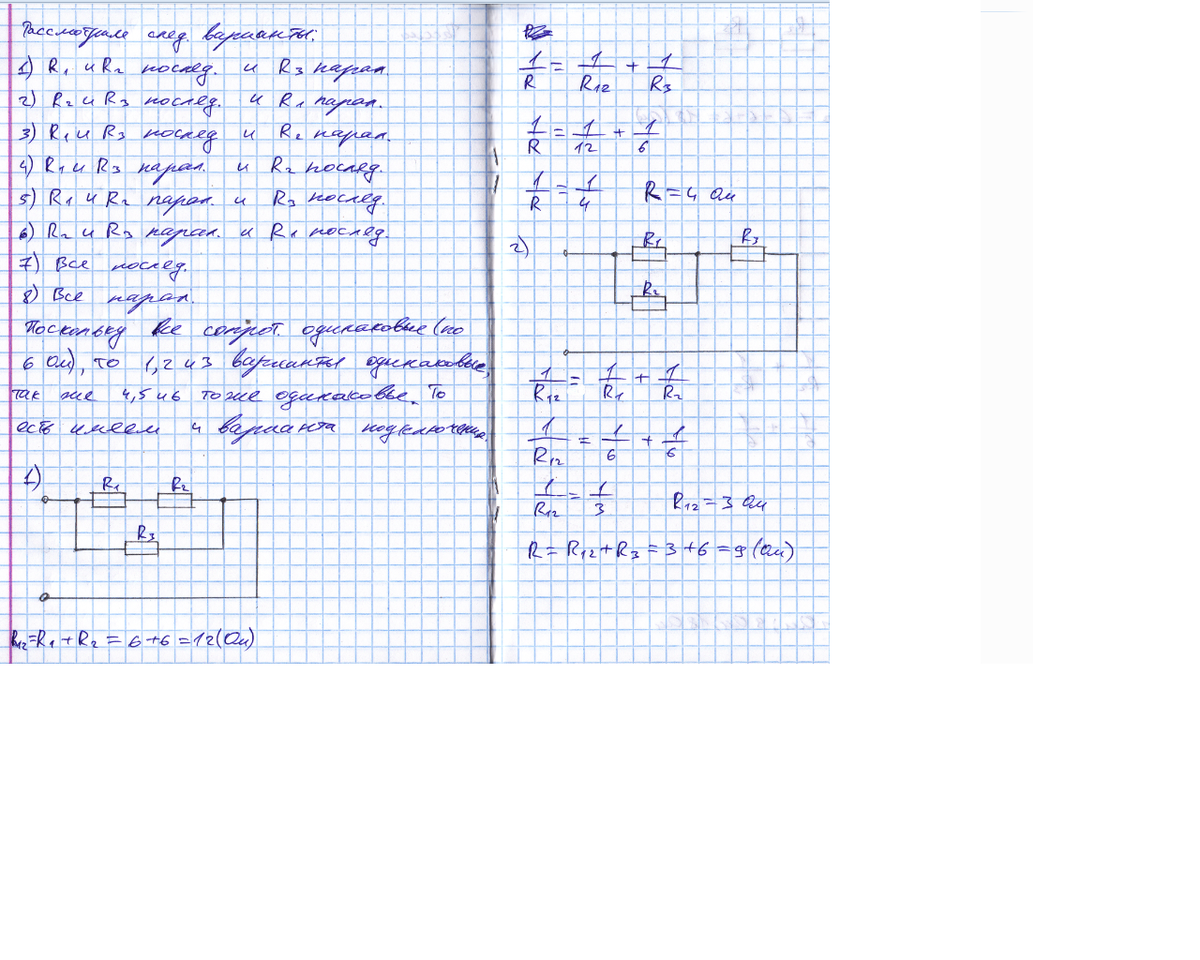 Рассмотрим след. варианты:
1) R₁ и R₂ послед. и R₃ парал.
2) R₂ и R₃ послед. и R₁ парал.
3) R₁ и R₃ послед и R₂ парал.
4) R₁ и R₃ парал. и R₂ послед.
5) R₁ и R₂ парал. и R₃ послед.
6) R₂ и R₃ парал. и R₁ послед.
7) Все послед.
8) Все парал.
Поскольку все сопрот. одинаковые (по
6 Ом), то 1, 2 и 3 варианты одинаковые,
так же 4, 5 и 6 тоже одинаковые. То
есть имеем 4 варианта подключения.
1)
R₁ R₂
R₃
R₁₂=R₁+R₂=6+6=12(Ом)
1/R = 1/R₁₂ + 1/R₃
1/R = 1/12 + 1/6
1/R = 1/4 R=4 Ом
2)
R₁ R₃
R₂
1/R₁₂ = 1/R₁ + 1/R₂
1/R₁₂ = 1/6 + 1/6
1/R₁₂ = 1/3 R₁₂=3 Ом
R=R₁₂+R₃=3+6=9(Ом)